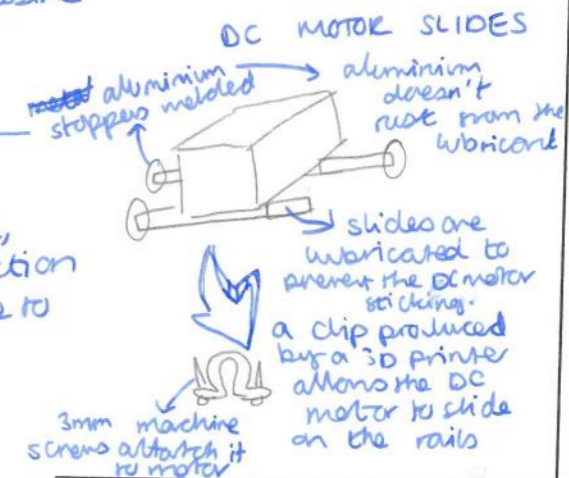 DC MOTOR SLIDES
aluminium
stoppers welded
aluminium
doesn't
rust from the
lubricant
ction
e to
slides are
lubricated to
prevent the DC motor
sticking.
a clip produced
by a 3D printer
allows the DC
motor to slide
on the rails
3mm machine
screws attatch it
to motor